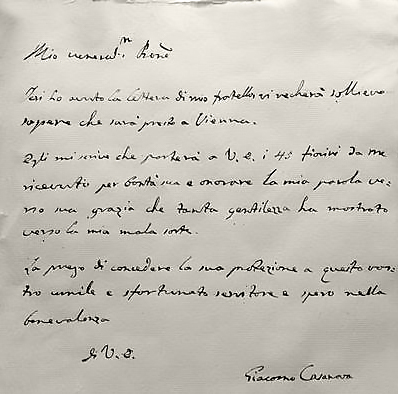 Mio venerat.mo Pronè
Ieri ho avuto la lettera di mio fratello vi recherà sollievo
sapere che sarà presto a Vienna.
Egli mi scrive che porterà a V. E. i 45 fiorini da me
ricevuti per bontà sua e onorare la mia parola ve-
rso sua grazia che tanta gentilezza ha mostrato
verso la mia mala sorte.
La prego di concedere la sua protezione a questo vos-
tro umile e sfortunato servitore e spero nella
benevolenza
di V. E.
Giacomo Casanova